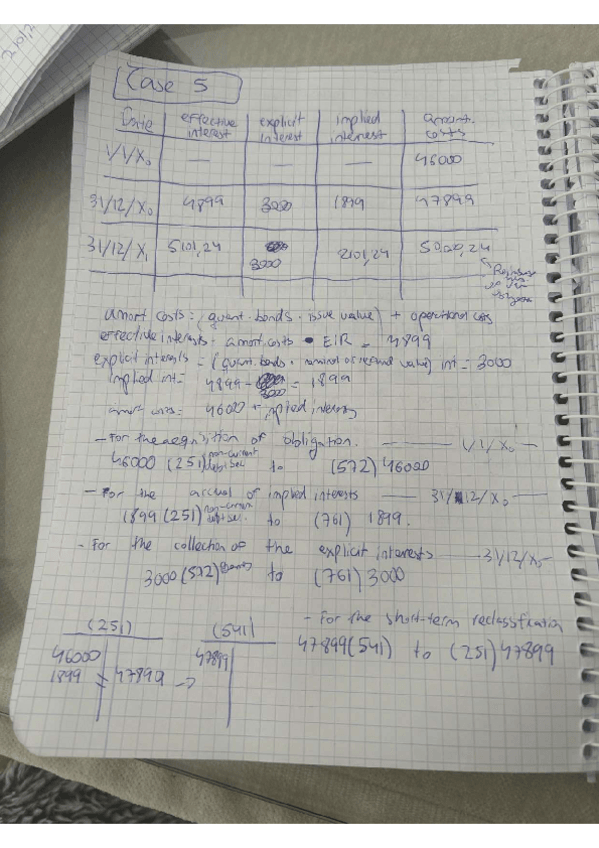 Case 5
Date effective interest explicit interest implied interest amort. costs
1/1/X0 — — — 46000
31/12/X0 4899 3000 1899 47899
31/12/X1 5101,24 3000 2101,24 50000,24
amort costs = (quant. bonds · issue value) + operational costs
effective interests = amort. costs · EIR = 4899
explicit interests = (quant. bonds · nominal or redeemed value) int = 3000
Implied int = 4899 - 3000 = 1899
amort costs = 46000 + implied interests
- For the acquisition of obligation. ——— 1/1/X0
46000 (251) non-current debt sec to (572) 46000
- For the accrual of implied interests —— 31/12/X0 —
1899 (251) non-current debt sec. to (761) 1899.
- For the collection of the explicit interests —— 31/12/X0
3000 (572) Banks to (761) 3000
- For the short-term reclassification
47899 (541) to (251) 47899
(251) (541)
46000
1899 47899 → 47899